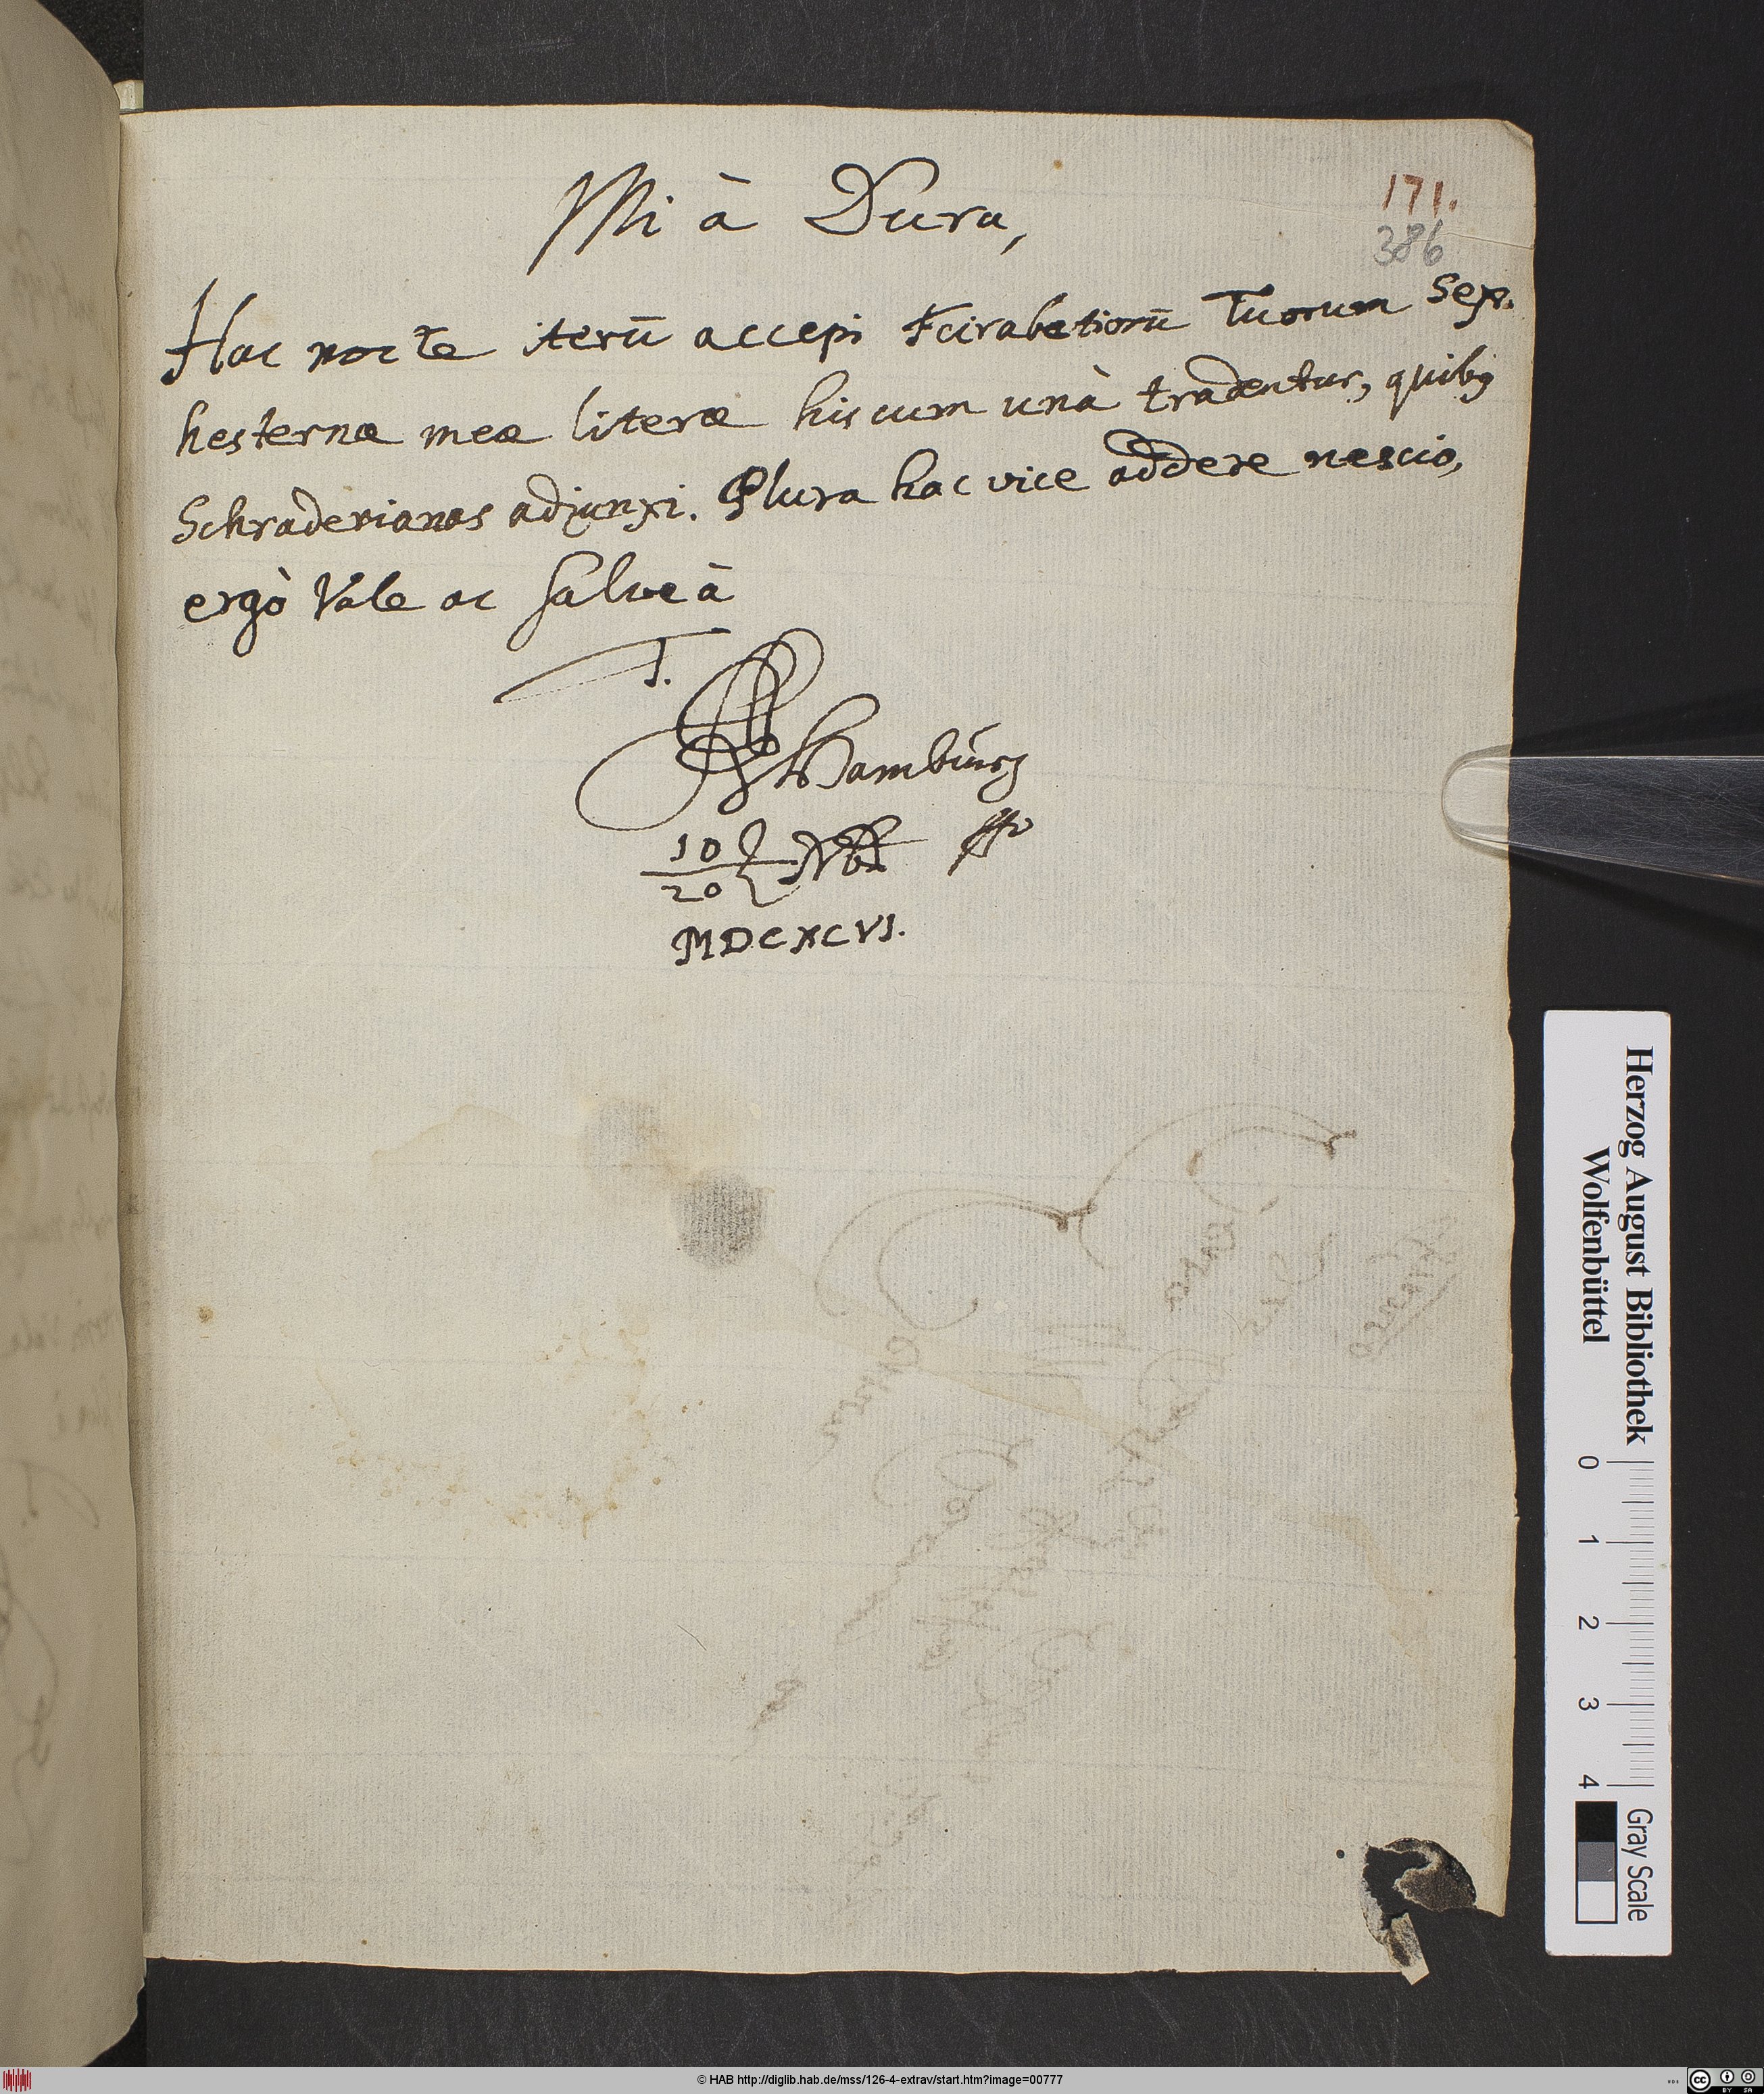 171.
386
Mi à Dura,
Hac nocte iterū accepi Tuorum Sep.
hesternæ meæ literæ hiscum unà tradentur, quibꝫ
Schraderianas adjunxi. Plura hac vice addere nescio,
ergò Vale ac Salve à
T.
Hamburg
10
20
MDCXCVI.
Herzog August Bibliothek
Wolfenbüttel
0 1 2 3 4
Gray Scale
© HAB http://diglib.hab.de/mss/126-4-extrav/start.htm?image=00777